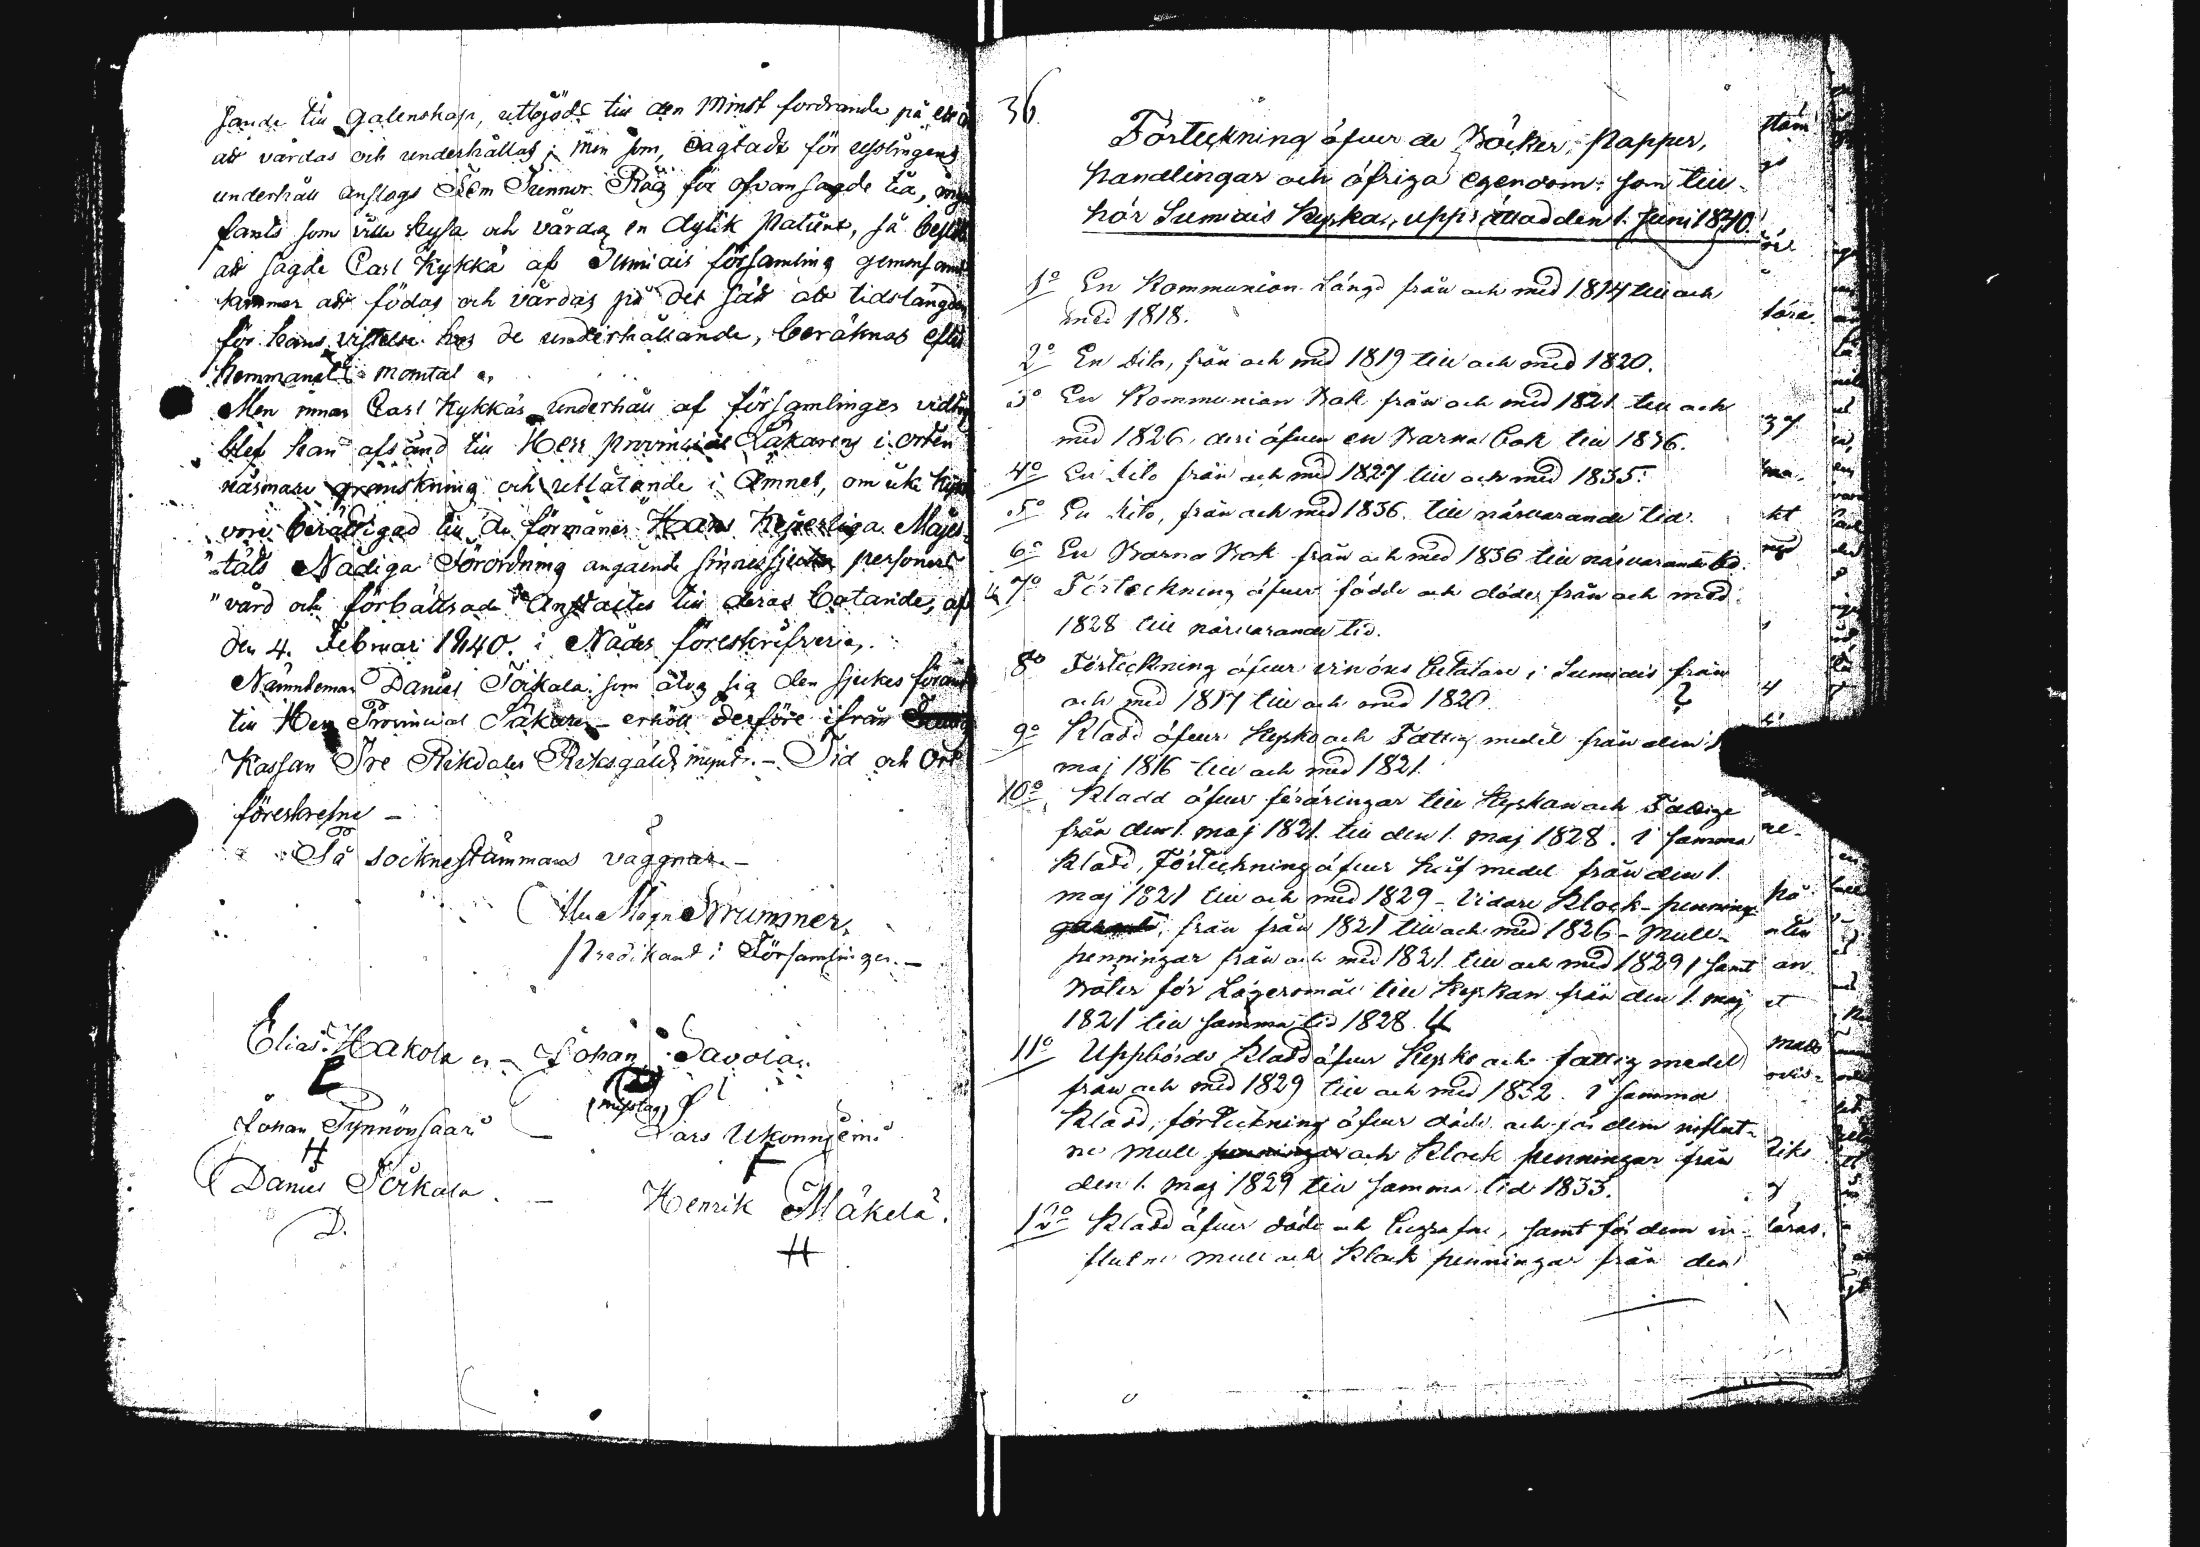 sande till galenskap, utbjöds till den Minst fordrande på ett år
att vårdas och underhållas; Men som, oagtadt för usslingens
underhåll anslogs Fem Tunnor Råg för ofvansagde tid, ingen
fants som ville hysa och vårda en dylik Patient, så beslöts
att sagde Carl Kykkä af Sumiais församling gemensamt
kommer att födas och vårdas på det sätt att tidslängden
för hans vistelse hos de underhållande, beräknas efter
hemmanets mantal
Men innan Carl Kykkäs underhåll af församlingen vidtog
blef han afsänd till Herr provincial Läkaren i orten
närmare granskning och utlåtande i Ämnet, om icke
vore berättigad till de förmåner Hans Kejserliga Majes-
"täts Nådiga Förordning angående sinnessjuka personers
"vård och förbättrade Anstalter till deras botande, af
den 4. Februari 1840. i Nåder föreskrifver.
Nämndeman Daniel Toikala som åtog sig den sjukes
till Herr Provincial Läkaren - erhöll derföre ifrån
Kassan Tre Rikdaler Riksgälds mynt. - Tid och Ort
föreskrefne -
På sockneståmmans vägnar. -
Magn Brummer,
Predikant i Församlingen. -
Elias Hakola - Johan Savola
E
(misstag)
Johan Tynnönsaari - Lars Ukonniemi
H
Daniel Toikala. - Henrik Mäkelä.
D. H
36.
Förteckning öfver de Böcker, Papper,
handlingar och öfriga egendom; som till-
hör Sumiais Kyrka, upprättad den 1. Juni 1840.
1o En Kommunion Längd från och med 1814 till och
med 1818.
2o En dito, från och med 1819 till och med 1820.
3o En Kommunion Bok från och med 1821 till och
med 1826, deri äfven en Barna bok till 1836.
4o En dito från och med 1827 till och med 1835.
5o En dito, från och med 1836. till närvarande tid.
6o En Barna Bok från och med 1836 till närvarande tid.
7o Förteckning öfver födde och döde, från och med
1828 till närvarande tid.
8o Förteckning öfver betalare i Sumiais från
och med 1817 till och med 1820.
9o Kladd öfver Kyrko och Fattig medel från den 1
maj 1816 till och med 1821.
10o Kladd öfver föräringar till Kyrkan och Fattige
från den 1. maj 1821. till den 1. maj 1828. I samma
Kladd, Förteckning öfver Håf medel från den 1.
maj 1821 till och med 1829 - Vidare Klock-penning
från från 1821 till och med 1826 - Mull-
penningar från och med 1821. till och med 1829, samt
Böter för Lägersmål till Kyrkan från den 1. maj
1821 till samma tid 1828.
11o Uppbörds Kladd öfver Kyrko och fattig medel
från och med 1829 till och med 1832. I samma
Kladd, förteckning öfver döde och för dem influt-
ne mull och Klock penningar från
den 1. maj 1829 till samma tid 1833.
12o Kladd öfver döde och begrafne, samt för dem in-
flutne mull och Klock penningar från den